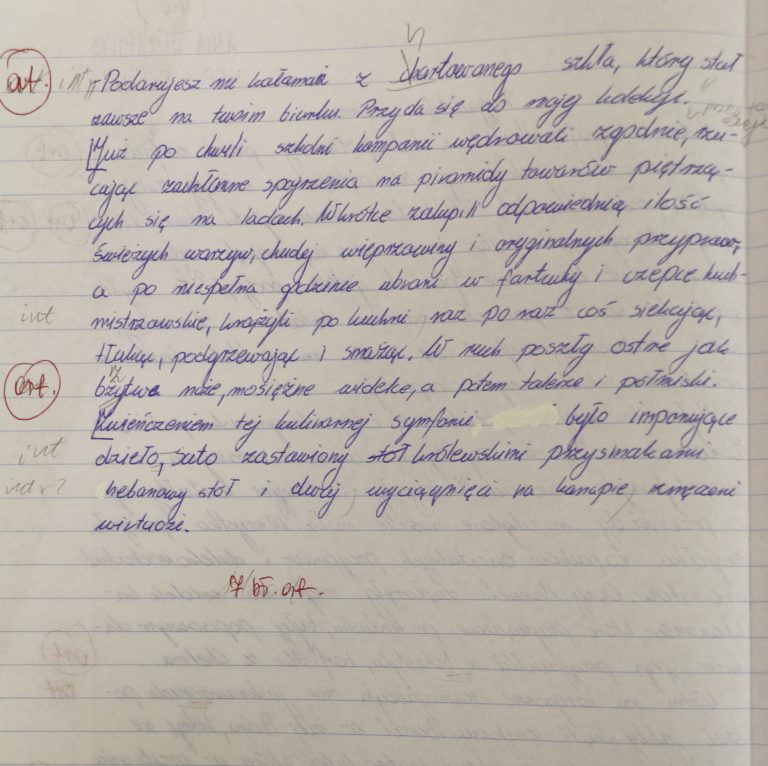 h
ort. int "Podarujesz mi kałamaż z chartowanego szkła, który stał
zawsze na twoim biurku. Przyda się do mojej kolekcji.
Już po chwili szkolni kompanii wędrowali zgodnie, rzu-
cając zachłanne spojrzenia na piramidy towarów piętrzą-
cych się na ladach. Wkrótce zakupili odpowiednią ilość
świeżych warzyw, chudej wieprzowiny i oryginalnych przypraw,
a po niespełna godzinie ubrani w fartuchy i czepce kuch-
int mistrzowskie, krążyli po kuchni, raz po raz coś siekając,
tłukąc, podgrzewając i smażąc. W ruch poszły ostre jak
ort. bżytwa noże, mosiężne widelce, a potem talerze i półmiski.
rz
Zwieńczeniem tej kulinarnej symfonie było imponujące
int dzieło, suto zastawiony stół królewskimi przysmakami
int x 2 hebanowy stół i dwój wyciągnięci na kanapie, zmęczeni
wirtuozi.
7 bł. ort.